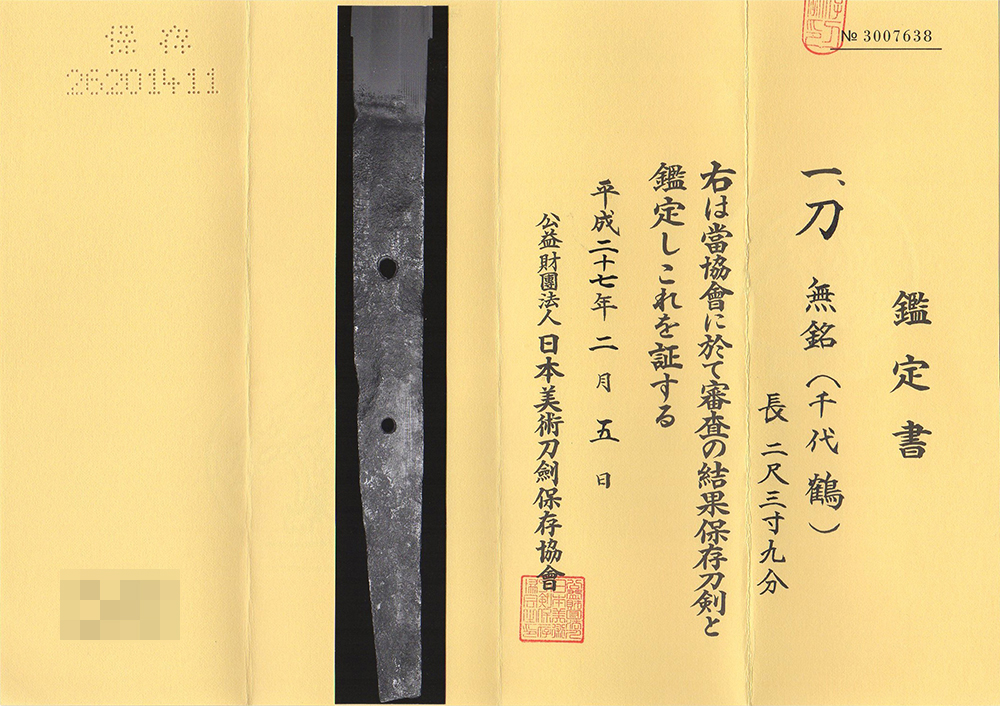 № 3007638
鑑定書
一、刀 無銘(千代鶴)
長 二尺三寸九分
右は當協會に於て審査の結果保存刀剣と
鑑定しこれを証する
平成二十七年二月五日
公益財團法人日本美術刀劍保存協會
保存
26201411